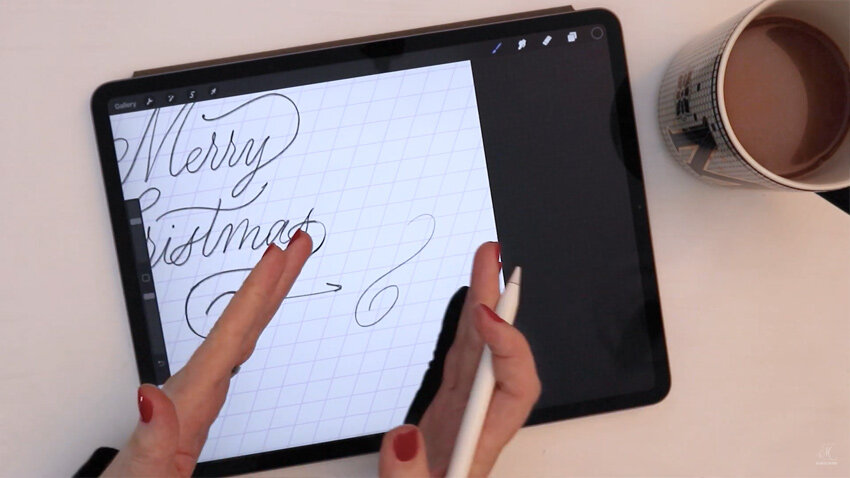 Gallery
Merry
Christmas